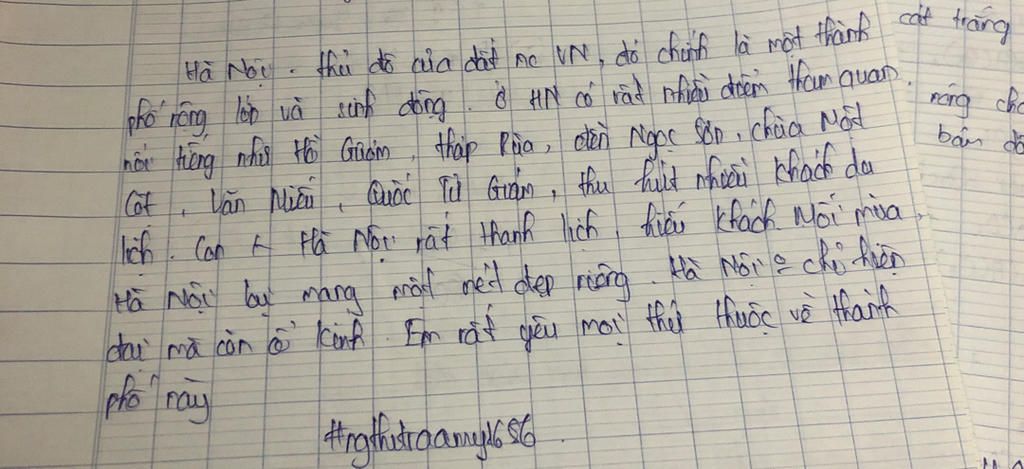 Hà Nội - thủ đô của đất nc VN, đó chính là một thành
phố rộng lớn và sinh động. Ở HN có rất nhiều điểm tham quan
nổi tiếng như Hồ Gươm, tháp Rùa, đền Ngọc Sơn, chùa Một
Cột, Văn Miếu, Quốc Tử Giám, thu hút nhiều khách du
lịch. Con Hà Nội rất thanh lịch, hiếu khách. Mỗi mùa,
Hà Nội lại mang một nét đẹp riêng. Hà Nội chỉ hiện
đại mà còn cổ kính. Em rất yêu mọi thứ thuộc về thành
phố này
cát trắng
bán